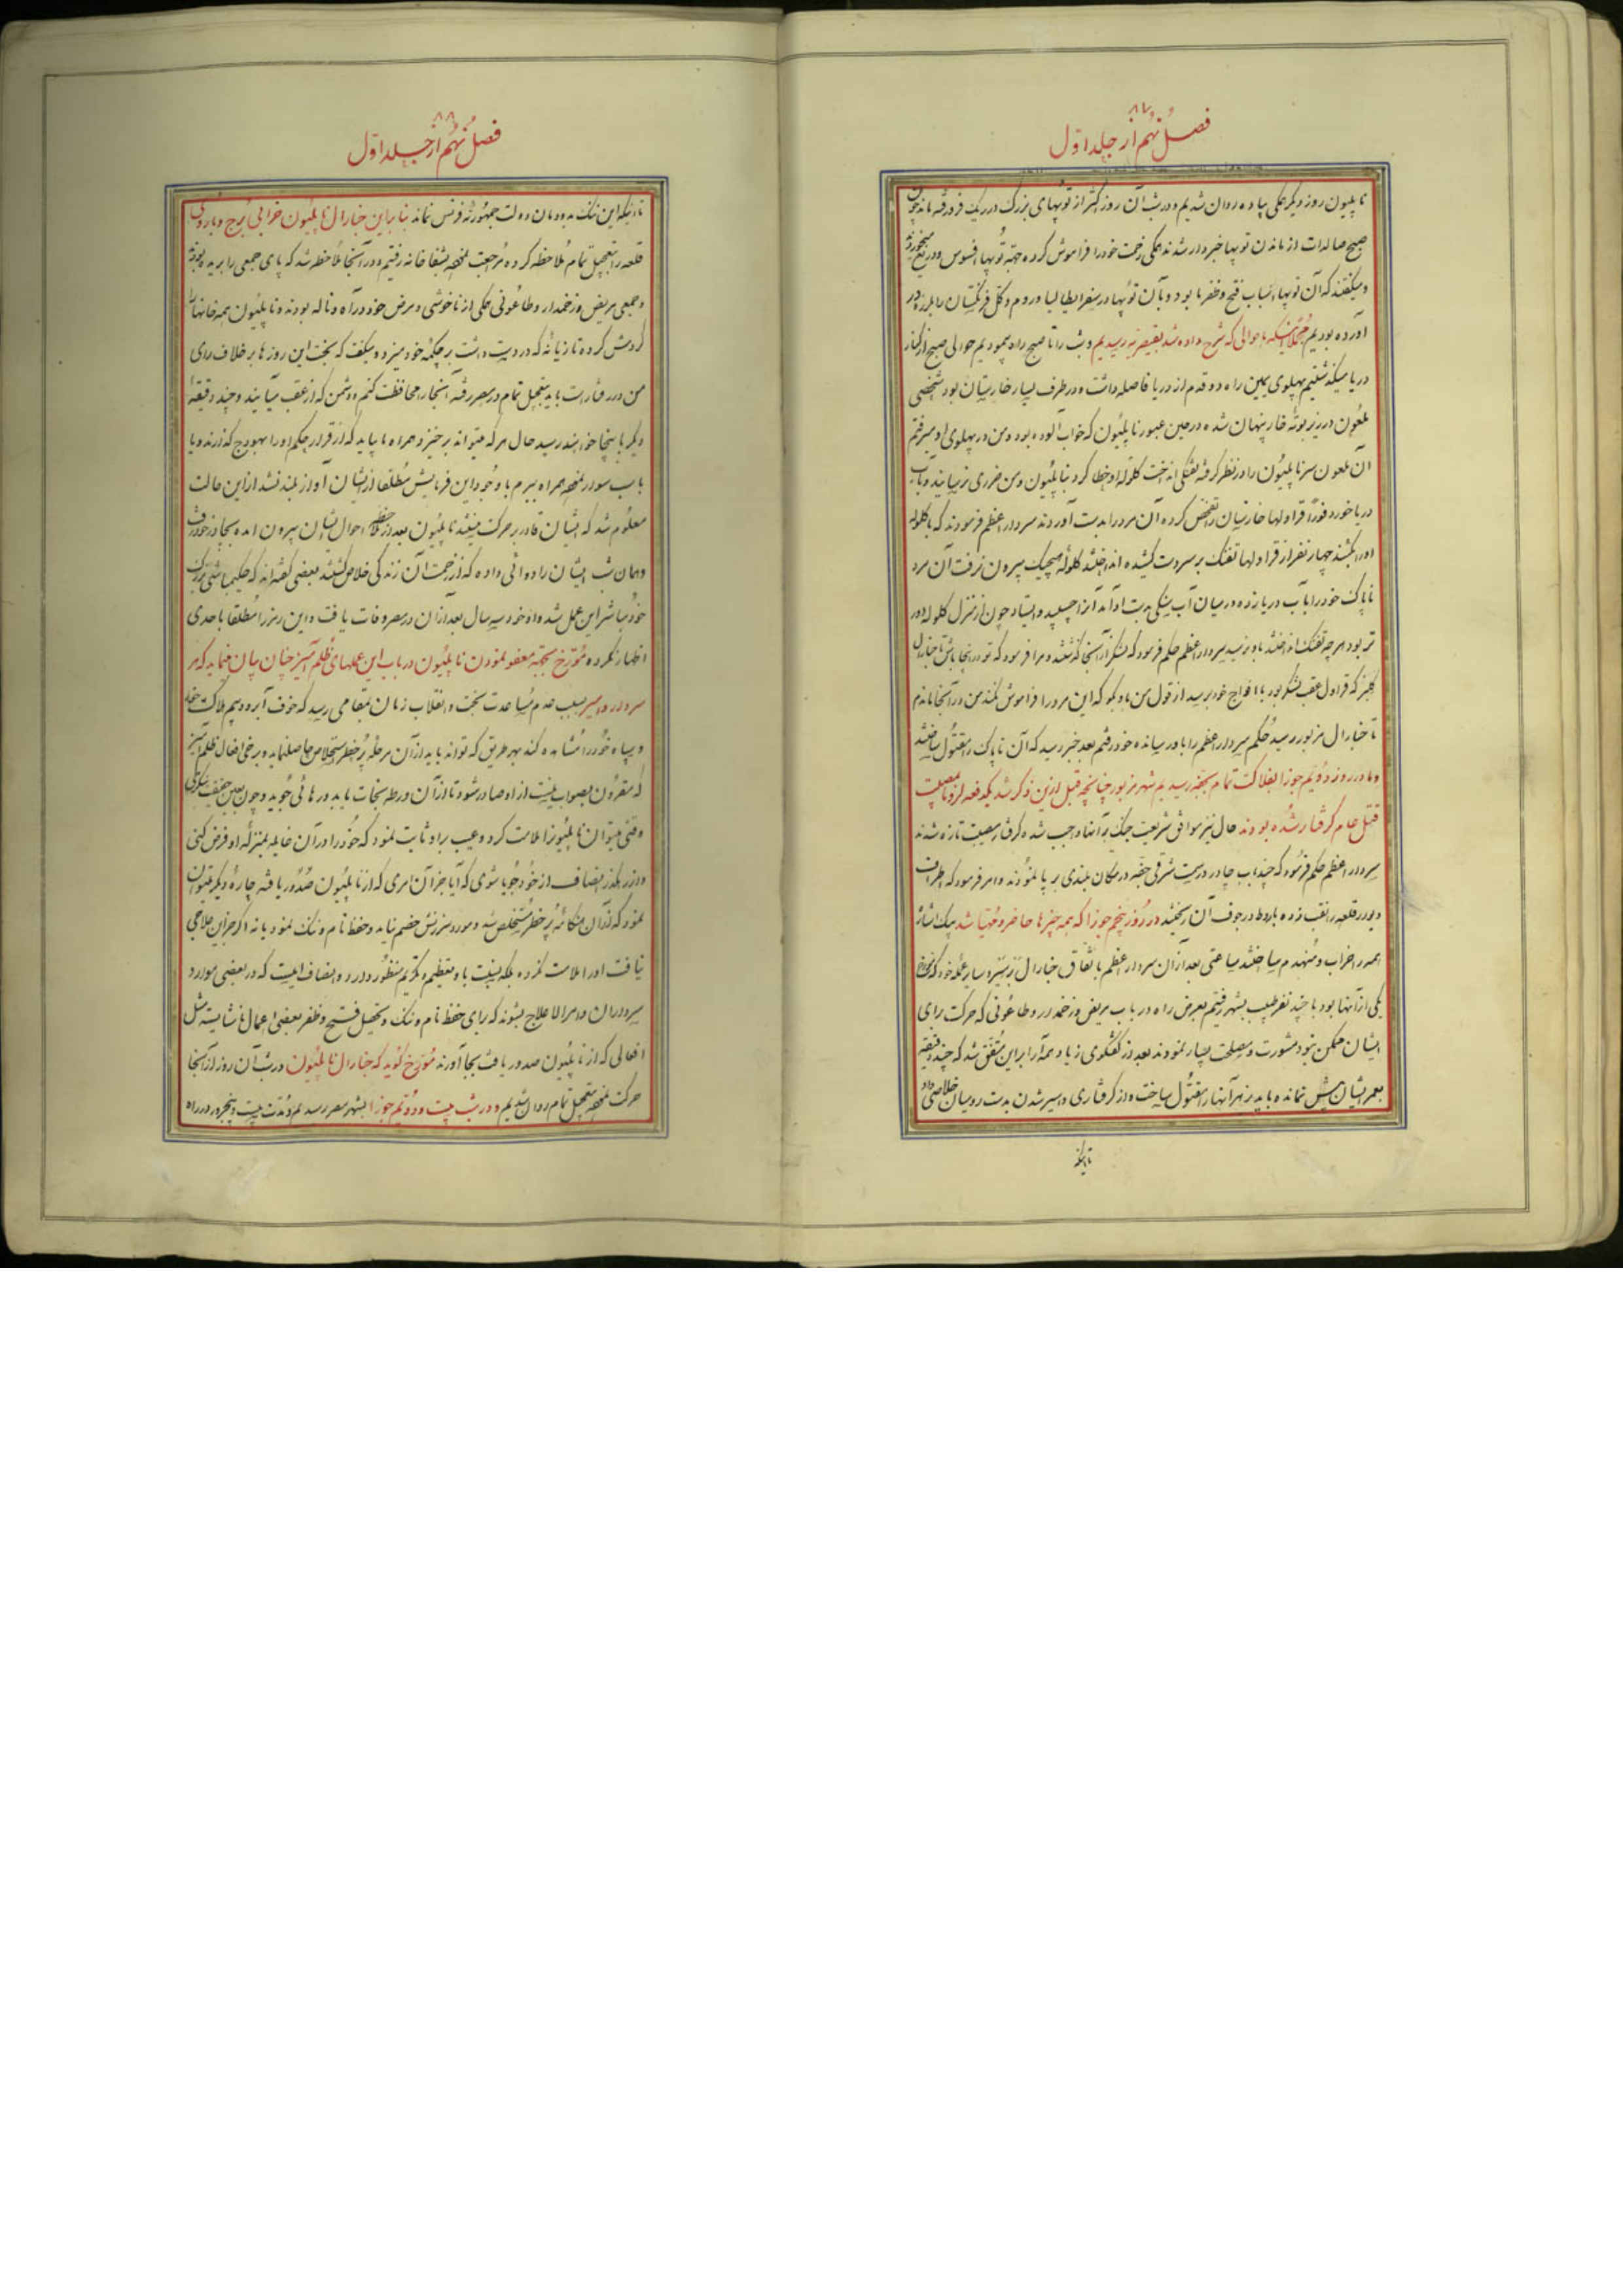 ٨٧
فصل نهم از جلد اول
ناپلیون روز دیگر همکی پیاده روان شدیم و در شب آن روز اکثر از توپهای بزرگ در ریک فرو رفته ماند چون
صبح صالدات از ماندن توپها خبردار شدند همکی زحمت خود را فراموش کرده بجهة توپها افسوس و دریغ میخوردند
و میکفتند که آن توپها اسباب فتح و ظفر ما بود و با آن توپها در سفر ایطالیا و روم و کل فرنکستان را بلرزه در
آورده بودیم مختصر اینکه با حوالی که شرح داده شد بقیصریه رسیدیم و شب را تا صبح راه پیمودیم حوالی صبح از کنار
دریا میکذشتیم پهلوی یمین راه دو قدم از دریا فاصله داشت و در طرف یسار خارستان بود شخصی
ملعون در زیر بوتهٔ خار پنهان شده در حین عبور ناپلیون که خواب آلوده بود و من در پهلوی او میرفتم
آن ملعون سر ناپلیون را در نظر کرفته تفنکی انداخت کلوله او خطا کرد بناپلیون و من ضرری نرسانید و بآب
دریا خورد فوراً قراولها خارستان را تفحص کرده آن مرد را بدست آوردند سردار اعظم فرمودند که با کلوله
او را بکشند چهار نفر از قراولها تفنک بر سر دست کشیده انداختند کلولهٔ هیچیک بیرون نرفت آن مرد
ناپاک خود را بآب دریا زده در میان آب سنکی بدست او آمد آنرا چسپید و ایستاد چون از منزل کلوله دور
تر بود هر چه تفنک انداختند باو نرسید سردار اعظم حکم فرمود که لشکر از آنجا کذشتند و مرا فرمود که تو در اینجا باش تا جنارال
کلبر که قراول عقب لشکر بود با افواج خود برسد از قول من باو بکو که این مرد را فراموش نکند من در آنجا ماندم
تا جنارال مزبور رسید حکم سردار اعظم را باو رسانده خود رفتم بعد خبر رسید که آن ناپاک را مقتول ساختند
و ما در روز دویم جوزا بفلاکت تمام بجفه رسیدیم شهر مزبور چنانچه قبل ازین ذکر شد یکدفعه از ما بمصیبت
قتل عام کرفتار شده بودند حال نیز موافق شریعت جنک بر آنها واجب شده کرفتار مصیبت تازه شدند
سردار اعظم حکم فرمود که چند باب چادر در سمت شرقی جفه در مکان بلندی بر پا نمودند و امر فرمود که اطراف
دیوار قلعه را نقب زده باروط در جوف آن ریختند در روز پنجم جوزا که همه چیزها حاضر و مهیا شد بیک اشاره
همه را خراب و منهدم ساختند ساعتی بعد از آن سردار اعظم باتفاق جنارال برتیر و سایر عمله خود که
یکی از آنها بود با چند نفر طبیب بشهر رفتیم بعرض راه در باب مریض و زخمدار و طاعونی که حرکت برای
ایشان ممکن نبود مشورت و مصلحت بسیار نمودند بعد از کفتکوی زیاد همه آرا بر این متفق شد که چند دقیقه
بعمر ایشان بیش نمانده باید بزهر آنها را مقتول ساخته و از کرفتاری و اسیر شدن بدست روسیان خلاصی داد
تا اینکه
٨٨
فصل نهم از جلد اول
تا اینکه این ننک بدودمان دولت جمهوریهٔ فرنس نماند بنابراین جنارال ناپلیون خرابی برج و باروی
قلعه را بتعجیل تمام ملاحظه کرده مراجعت نموده بشفاخانه رفتیم و در آنجا ملاحظه شد که پای جمعی را بریده بودند
و جمعی مریض و زخمدار و طاعونی همکی از ناخوشی و مرض خود در آه و ناله بودند و ناپلیون همه خانها را
کردش کرده تازیانهٔ که در دست داشت بر چکمهٔ خود میزد و میکفت که بخت این روزها بر خلاف رای
من در رفتار است باید بتعجیل تمام در مصر رفته آنجا را محافظت کنم و دشمن که از عقب میآیند و چند دقیقهٔ
دیکر باینجا خواهند رسید حال هر که میتواند برخیزد همراه ما بیاید که از قرار حکم او را بهودج کذارند و یا
باسب سوار نموده همراه ببرم با وجود این فرمایش مطلقا از ایشان آواز بلند نشد از این حالت
معلوم شد که ایشان قادر بر حرکت نیستند ناپلیون بعد از ملاحظه احوال ایشان بیرون آمده بجادر خود رفت
و همان شب ایشان را دوائی داده که از زحمت آن زندکی خلاص کشتند بعضی کفته اند که حکیمباشی بزرک
خود مباشر این عمل شده و او خود سه سال بعد از آن در مصر وفات یافت و این رمز را مطلقا باحدی
اظهار نکرده مورخ بجهة معفو نمودن ناپلیون در باب این عملهای ظلم آمیز چنان بیان مینماید که هر
سردار و امیر بسبب عدم مساعدت بخت و انقلاب زمان بمقامی رسد که خوف آبرو و بیم هلاکت خود
و سپاه خود را مشاهده کند بهر طریق که تواند باید از آن مرحلهٔ پر خطر استخلاص حاصلنماید و برخی افعال ظلم آمیز
که مقرون بصواب نیست از او صادر شود تا از آن ورطه نجات یابد و رهائی جوید و چون بعین حقیقت بنکری
وقتی میتوان ناپلیونرا ملامت کرد و عیب بر او ثابت نمود که خود را در آن غایله بمنزلهٔ او فرض کنی
و از رهکذر انصاف از خود جویا شوی که آیا جز آن امری که از ناپلیون صدور یافته چارهٔ دیکر میتوان
نمود که از آن هنکامهٔ پر خطر مستخلص شد و مورد سرزنش خصم نیاید و حفظ نام و ننک نمود یا نه اکر جز این علاجی
نیافت او را ملامت نکرده بلکه نسبت باو تعظیم و تکریم منظور دارد و انصاف اینست که در بعضی موارد
سرداران و امرا لاعلاج میشوند که برای حفظ نام و ننک و تحصیل فتح و ظفر بعضی اعمال ناشایسته مثل
افعالی که از ناپلیون صدور یافت بجا آورند مورخ کوید که جنارال ناپلیون در شب آن روز از آنجا
حرکت نموده بتعجیل تمام روان شدیم و در شب بیست و دویم جوزا بشهر مصر رسیدیم و مدت بیست و پنجروز در راه